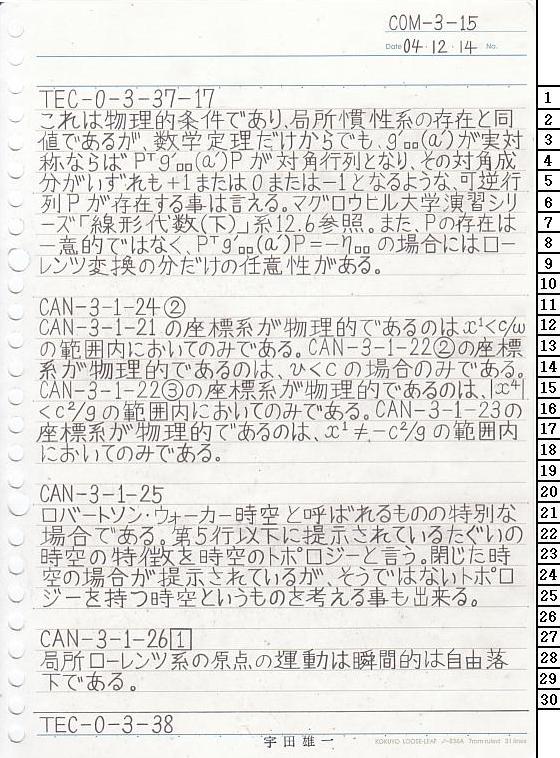 COM-3-15
Date 04・12・14 No.
TEC-0-3-37-17
これは物理的条件であり、局所慣性系の存在と同
値であるが、数学定理だけからでも、g′□□(a′)が実対
称ならば Pᵀg′□□(a′)P が対角行列となり、その対角成
分がいずれも+1または0または-1となるような、可逆行
列Pが存在する事は言える。マグロウヒル大学演習シリ
ーズ「線形代数(下)」系12.6参照。また、Pの存在は
一意的ではなく、Pᵀg′□□(a′)P=-η□□ の場合にはロー
レンツ変換の分だけの任意性がある。
CAN-3-1-24②
CAN-3-1-21 の座標系が物理的であるのはx¹<c/ω
の範囲内においてのみである。CAN-3-1-22②の座標
系が物理的であるのは、υ<cの場合のみである。
CAN-3-1-22③の座標系が物理的であるのは、|x⁴|
<c²/gの範囲内においてのみである。CAN-3-1-23の
座標系が物理的であるのは、x¹≠-c²/g の範囲内
においてのみである。
CAN-3-1-25
ロバートソン・ウォーカー時空と呼ばれるものの特別な
場合である。第5行以下に提示されているたぐいの
時空の特徴を時空のトポロジーと言う。閉じた時
空の場合が提示されているが、そうではないトポロ
ジーを持つ時空というものを考える事も出来る。
CAN-3-1-26[1]
局所ローレンツ系の原点の運動は瞬間的は自由落
下である。
TEC-0-3-38
宇田雄一
KOKUYO LOOSE-LEAF ノ-836A 7mm ruled 31 lines
1
2
3
4
5
6
7
8
9
10
11
12
13
14
15
16
17
18
19
20
21
22
23
24
25
26
27
28
29
30